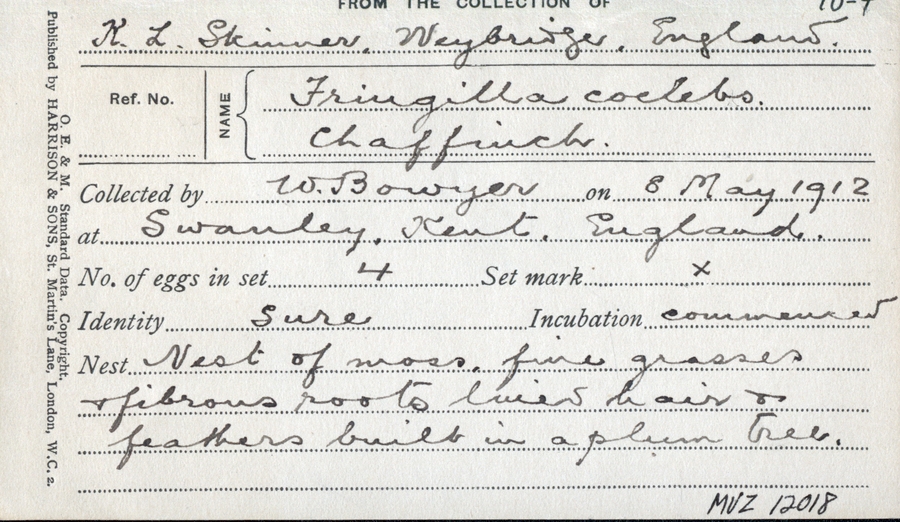 FROM THE COLLECTION OF
10-7
K. L. Skinner, Weybridge, England.
Ref. No.
NAME
Fringilla coelebs.
Chaffinch.
Collected by W. Bowyer on 8 May 1912
at Swanley, Kent. England.
No. of eggs in set 4 Set mark x
Identity Sure Incubation commenced
Nest Nest of moss, fine grasses
& fibrous roots lined hair &
feathers built in a plum tree.
MVZ 12018
O. E. & M. Standard Data. Copyright.
Published by HARRISON & SONS, St. Martin's Lane, London, W.C. 2.